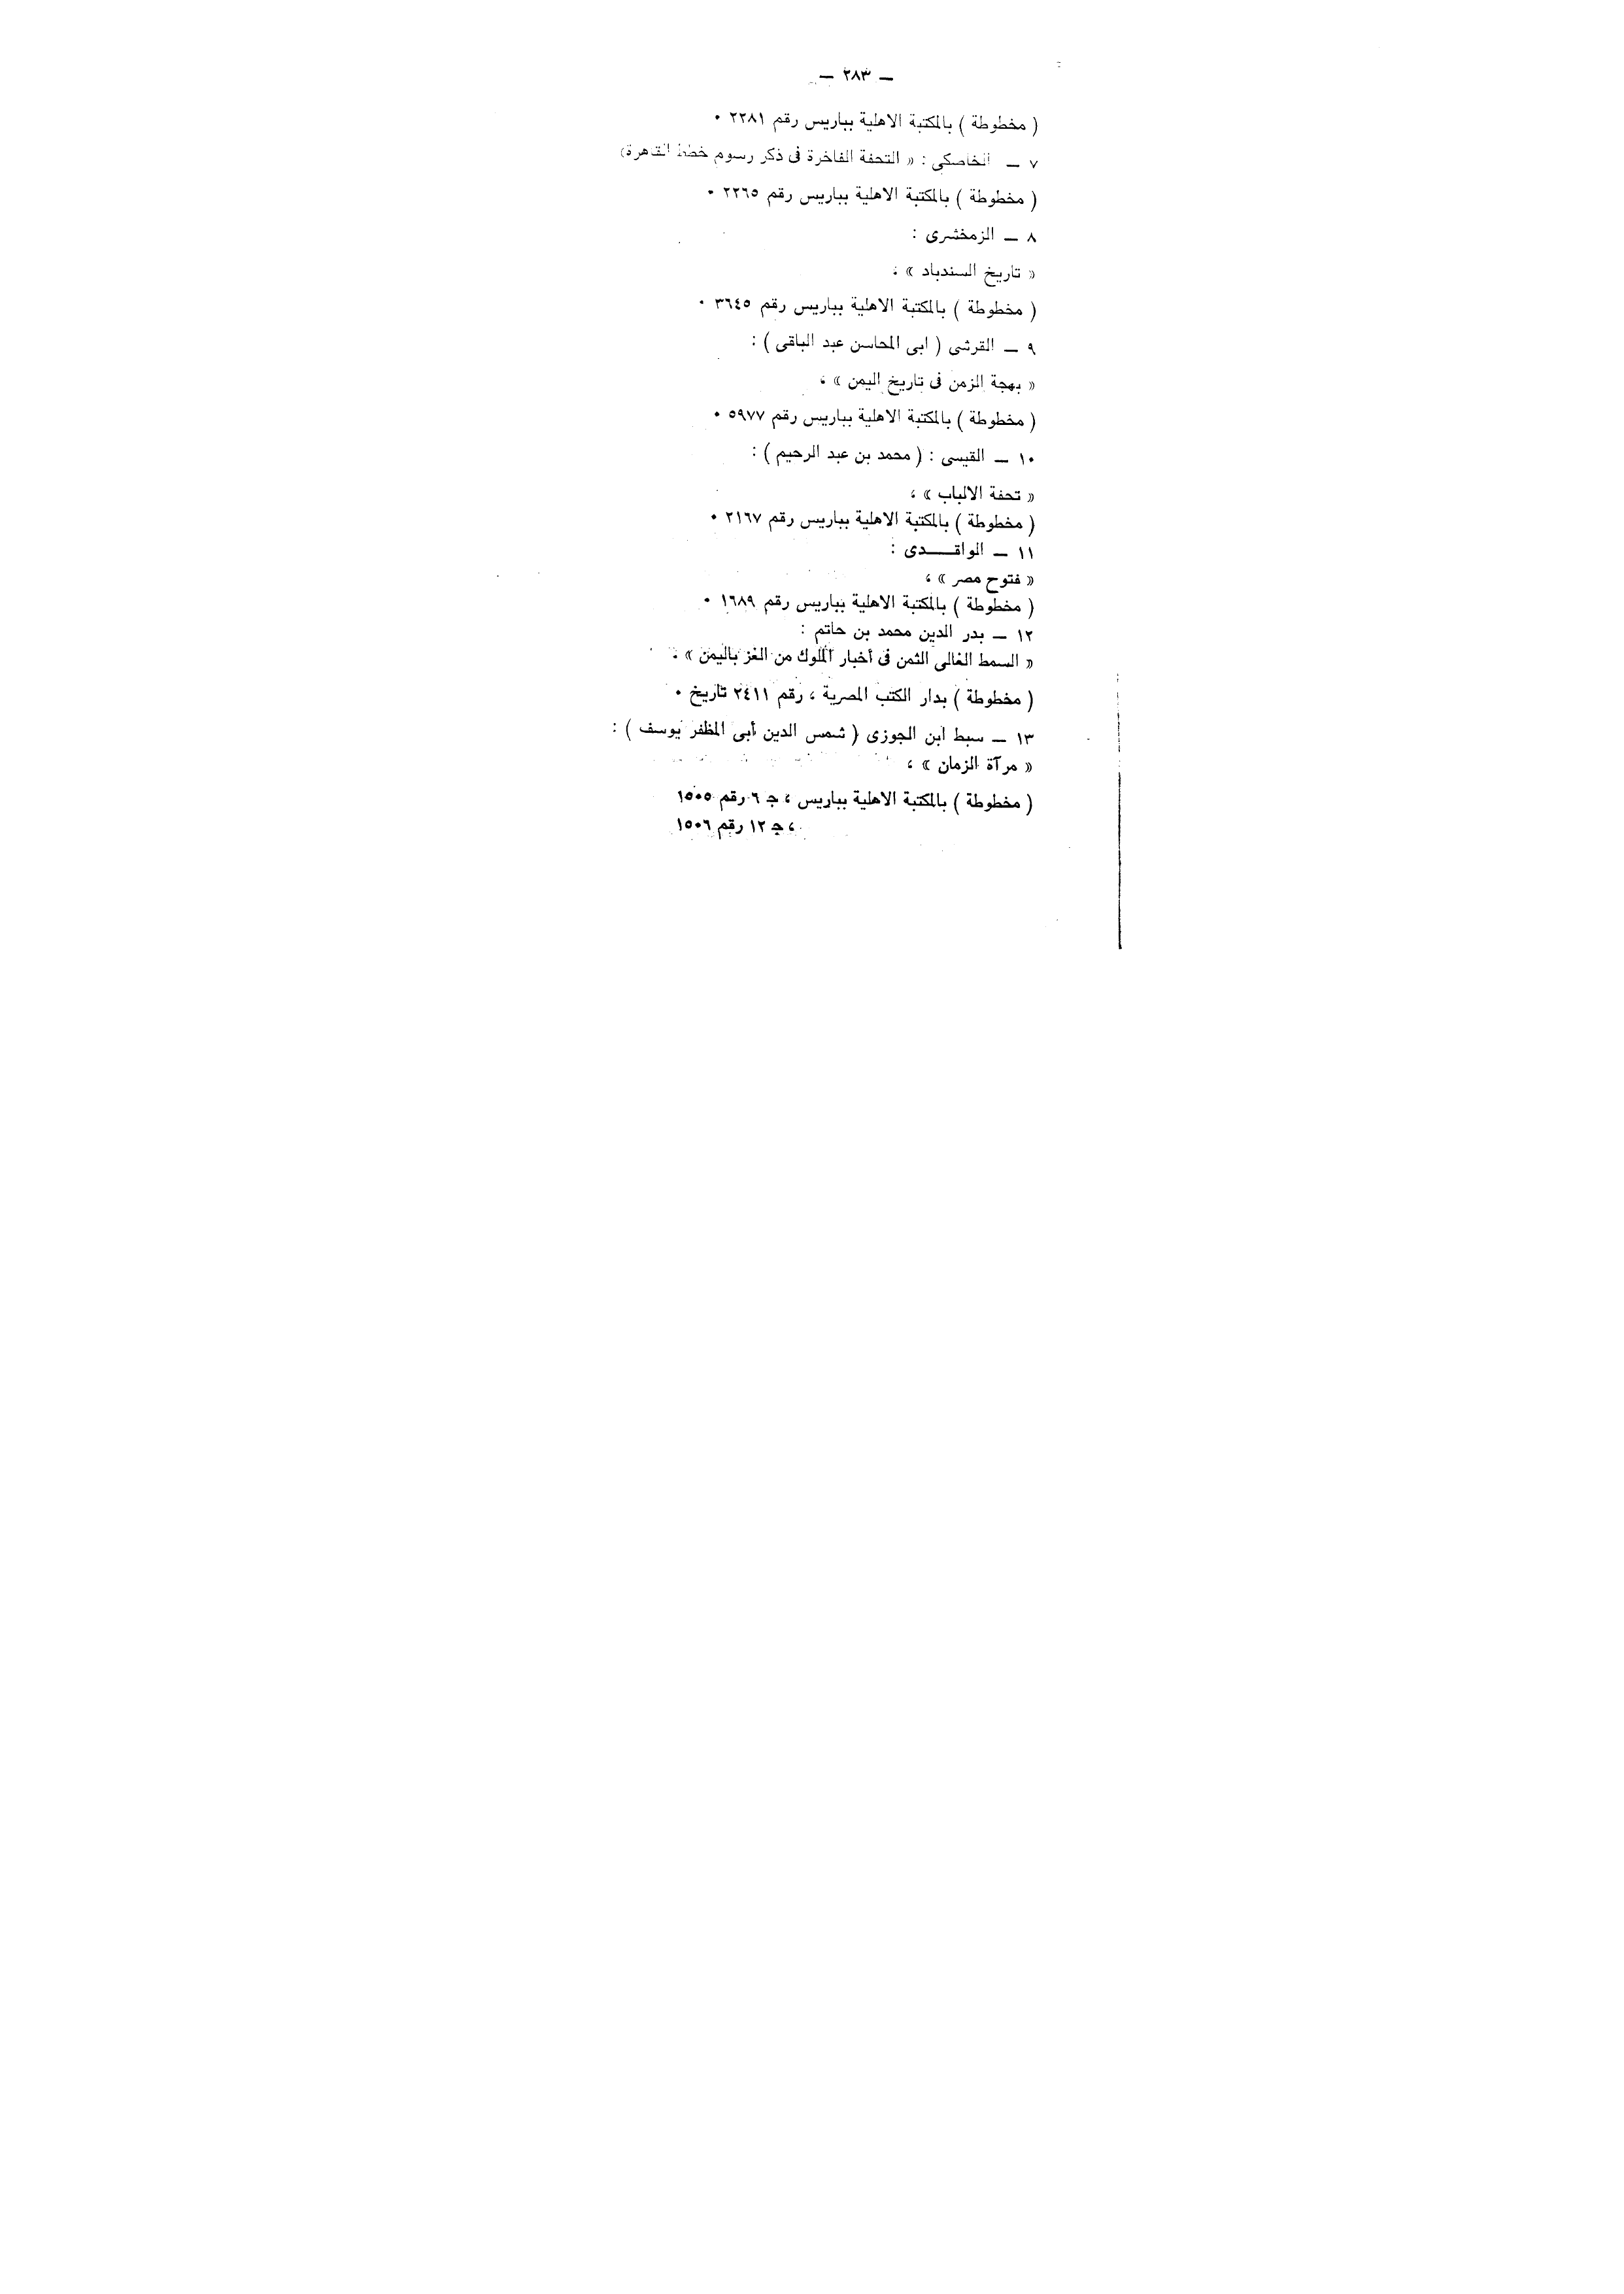 — ٢٨٣ —
( مخطوطة ) بالمكتبة الاهلية بباريس رقم ٢٢٨١ ٠
٧ — الخاصكى : « التحفة الفاخرة فى ذكر رسوم خطط القاهرة»
( مخطوطة ) بالمكتبة الاهلية بباريس رقم ٢٢٦٥ ٠
٨ — الزمخشرى :
« تاريخ السندباد » ؛
( مخطوطة ) بالمكتبة الاهلية بباريس رقم ٣٦٤٥ ٠
٩ — القرشى ( ابى المحاسن عبد الباقى ) :
« بهجة الزمن فى تاريخ اليمن » ؛
( مخطوطة ) بالمكتبة الاهلية بباريس رقم ٥٩٧٧ ٠
١٠ — القيسى : ( محمد بن عبد الرحيم ) :
« تحفة الالباب » ؛
( مخطوطة ) بالمكتبة الاهلية بباريس رقم ٢١٦٧ ٠
١١ — الواقـــدى :
« فتوح مصر » ؛
( مخطوطة ) بالمكتبة الاهلية بباريس رقم ١٦٨٩ ٠
١٢ — بدر الدين محمد بن حاتم :
« السمط الغالى الثمن فى أخبار الملوك من الغز باليمن » ؛
( مخطوطة ) بدار الكتب المصرية ، رقم ٢٤١١ تاريخ ٠
١٣ — سبط ابن الجوزى ( شمس الدين أبى المظفر يوسف ) :
« مرآة الزمان » ؛
( مخطوطة ) بالمكتبة الاهلية بباريس ؛ ج ٦ رقم ١٥٠٥
؛ ج ١٢ رقم ١٥٠٦